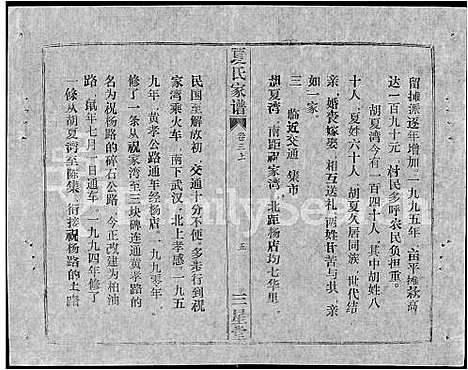 留摊派逐年增加一九九五年一亩平摊款高
达一百九十元村民多呼农民负担重。
胡夏湾今有一百四十人其中胡姓八
十人夏姓六十人胡夏久居同族世代结
亲婚丧嫁娶相互送礼两姓甘苦与共亲
如一家
三 临近交通集市
胡夏湾南距祝家湾北距杨店均七华里
夏氏家谱
卷三上
五
三星堂
民国至解放初交通十分不便多步行到祝
家湾乘火车南下武汉北上孝感一九五
九年黄孝公路通车经杨店一九九零年
修了一条从祝家湾至三块碑连通黄孝路的
名为祝杨路的碎石公路今正改建为柏油
路鼠年七月一日通车一九九四年修了
一条从胡夏湾至陈集衔接祝杨路的土路
FamilySearch